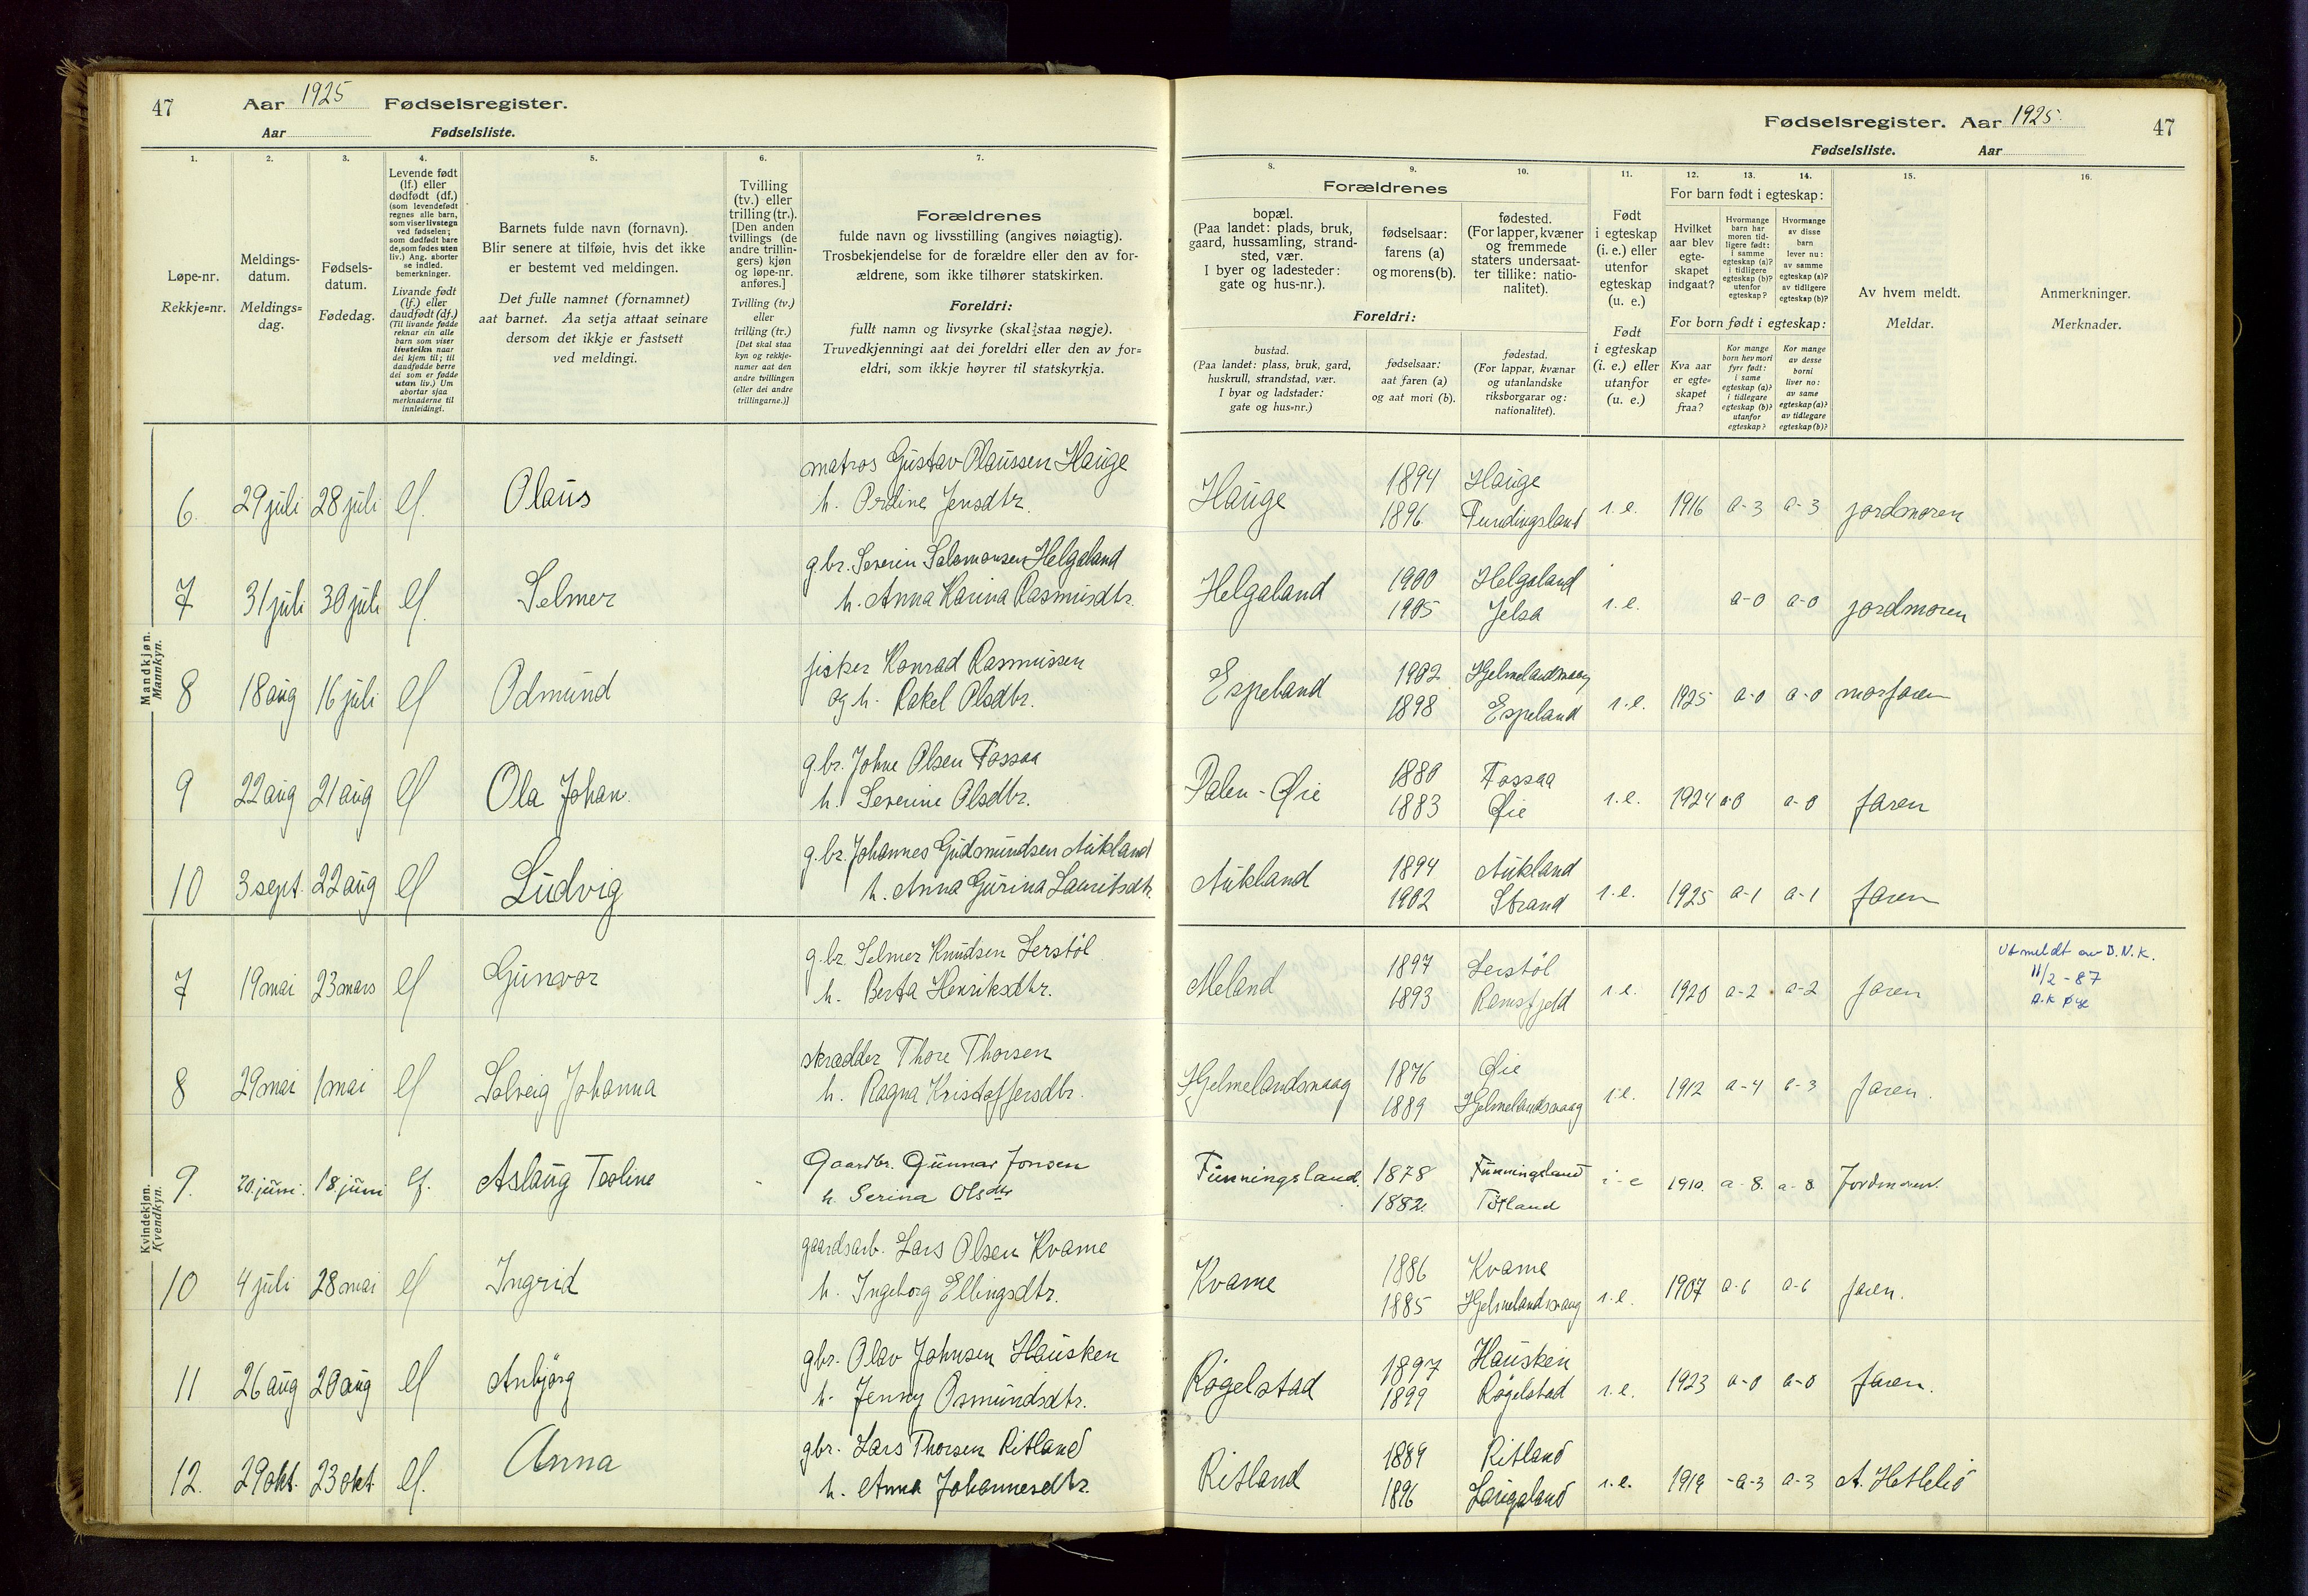 47 Aar 1925 Fødselsregister.
Aar Fødselsliste.
Fødselsregister. Aar 1925. 47
Fødselsliste. Aar
1. 2. 3. 4. 5. 6. 7.
Løpe-nr.
Rekkje=nr.
Meldings-
datum.
Meldings=
dag.
Fødsels-
datum.
Fødedag.
Levende født
(lf.) eller
dødfødt (df.)
(som levendefødt
regnes alle barn,
som viser livstegn
ved fødselen;
som dødfødt bare
de, som fødes uten
liv.) Ang. aborter
se indled.
bemerkninger.
Livande født
(lf.) eller
daudfødt (df.)
(Til livande fødde
reknar ein alle
barn som viser
livsteikn naar
dei kjem til; til
daudfødde berre
dei som er fødde
utan liv.) Um
abortar sjaa
merknaderne til
innleidingi.
Barnets fulde navn (fornavn).
Blir senere at tilføie, hvis det ikke
er bestemt ved meldingen.
Det fulle namnet (fornamnet)
aat barnet. Aa setja attaat seinare
dersom det ikkje er fastsett
ved meldingi.
Tvilling
(tv.) eller
trilling (tr.).
[Den anden
tvillings (de
andre trillin-
gers) kjøn
og løpe-nr.
anføres.]
Tvilling (tv.)
eller
trilling (tr.)
[Det skal staa
kyn og rekkje-
numer aat den
andre tvillingen
(eller dei andre
trillingarne.)]
Forældrenes
fulde navn og livsstilling (angives nøiagtig).
Trosbekjendelse for de forældre eller den av for-
ældrene, som ikke tilhører statskirken.
Foreldri:
fullt namn og livsyrke (skal staa nøgje).
Truvedkjenningi aat dei foreldri eller den av for=
eldri, som ikkje høyrer til statskyrkja.
8. 9. 10. 11. 12. 13. 14. 15. 16.
Forældrenes
bopæl.
(Paa landet: plads, bruk,
gaard, hussamling, strand-
sted, vær.
I byer og ladesteder:
gate og hus-nr.).
fødselsaar:
farens (a)
og morens (b).
fødested.
(For lapper, kvæner
og fremmede
staters undersaat-
ter tillike: natio-
nalitet).
Foreldri:
bustad.
(Paa landet: plass, bruk, gard,
huskrull, strandstad, vær.
I byar og ladstader:
gate og hus=nr.)
fødselsaar:
aat faren (a)
og aat mori (b).
fødestad.
(For lappar, kvænar
og utanlandske
riksborgarar og:
nationalitet).
Født
i egteskap
(i. e.) eller
utenfor
egteskap
(u. e.)
Født
i egteskap
(i. e.) eller
utanfor
(u. e.)
For barn født i egteskap:
Hvilket
aar blev
egte-
skapet
indgaat?
Hvormange
barn har
moren tid-
ligere født:
i samme
egteskap (a)?
i tidligere
egteskap (b)?
utenfor
egteskap?
Hvormange
av disse
barn
lever nu:
av samme
egteskap (a)?
av tidligere
egteskap (b)?
For born født i egteskap:
Kva aar
er egte=
skapet
fraa?
Kor mange
born hev mori
fyrr født:
i same
egteskap (a)?
i tidlegare
egteskap (b)?
utanfor
egteskap?
Kor mange
av desse
borni
liver no:
av same
egteskap (a)?
av tidlegare
egteskap (b)?
Av hvem meldt.
Meldar.
Anmerkninger.
Merknader.
Mandkjøn.
Mannkyn.
matros Gustav Olaussen Hauge
6. 29 juli 28 juli lf. Olaus h. Ordine Jensdtr. Hauge 1894 1896 Hauge Fundingsland i. e. 1916 a-3 a-3 jordmoren
g.br. Severin Salomonsen Helgaland
7 31 juli 30 juli lf. Selmer h. Anna Karina Rasmusdtr. Helgaland 1900 1905 Helgaland Jelsa i. e. a-0 a-0 jordmoren
fisker Konrad Rasmussen
8 18 aug 16 juli lf Odmund og h. Rakel Olsdtr. Espeland 1902 1898 Hjelmelandsvaag Espeland i. e. 1925 a-0 a-0 morfaren
g.br. Johne Olsen Fossaa
9 22 aug 21 aug lf Ola Johan. h. Severine Olsdtr. Dalen-Øie 1880 1883 Fossaa Øie i. e. 1924 a-0 a-0 faren
g.br. Johannes Gudmundsen Aukland
10 3 sept. 22 aug lf Ludvig h. Anna Gurina Lauritsdtr. Aukland 1894 1902 Aukland Strand i. e. 1925 a-1 a-1 faren
Kvindekjøn.
Kvendkyn.
g.br. Selmer Knudsen Lerstöl
7 19 mai 23 mars lf Gunvor h. Berta Henriksdtr. Meland 1897 1893 Lerstöl Ramsfjeld i. e. 1920 a-2 a-2 faren
Utmeldt av D.N.K.
11/2-87
A.K Øye
skrædder Thore Thorsen
8 29 mai 1 mai lf Solveig Johanna h. Ragna Kristoffersdtr. Hjelmelandsvaag 1876 1889 Øie Hjelmelandsvaag i. e. 1912 a-4 a-3 faren.
Gaardbr. Gunnar Jonsen
9. 20. juni. 18. juni lf. Aslaug Toline h. Serina Olsdtr Funningsland. 1878 1882. Funningsland Tøtland i-e 1910. a-8. a-8 Jordmoren.
gaardsarb. Lars Olsen Kvame
10 4 juli 28 mai lf Ingrid h. Ingeborg Ellingsdtr. Kvame 1886 1885 Kvame Hjelmelandsvaag i. e. 1907 a-6 a-6 faren.
gbr. Olav Johnsen Hausken
11 26 aug 20 aug lf Anbjörg h. Jenny Osmundsdtr. Rögelstad 1897 1899 Hausken Rögelstad i. e. 1923 a-0 a-0 faren.
gbr. Lars Thorsen Ritland
12. 29 okt. 23 okt. lf. Anna h. Anna Johannesdtr. Ritland 1889 1896 Ritland Laugaland i. e. 1919 -a-3 a-3 A. Hetleliö